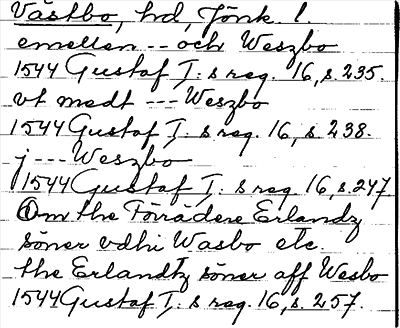 Västbo, hd, Jönk. l.
emellen -- och Weszbo
1544 Gustaf I: s reg. 16, s. 235.
vt medt --- Weszbo
1544 Gustaf I: s reg. 16, s. 238.
j --- Weszbo
1544 Gustaf I. s reg 16, s. 247
Om the Förrädere Erlandz
söner vdhi Wasbo etc.
the Erlandtz söner aff Wesbo
1544 Gustaf I. s reg. 16, s. 257.